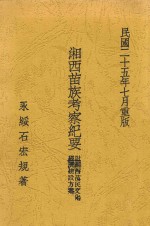 民國二十五年七月重版
湘西苗族考察紀要
永綏石宏規著